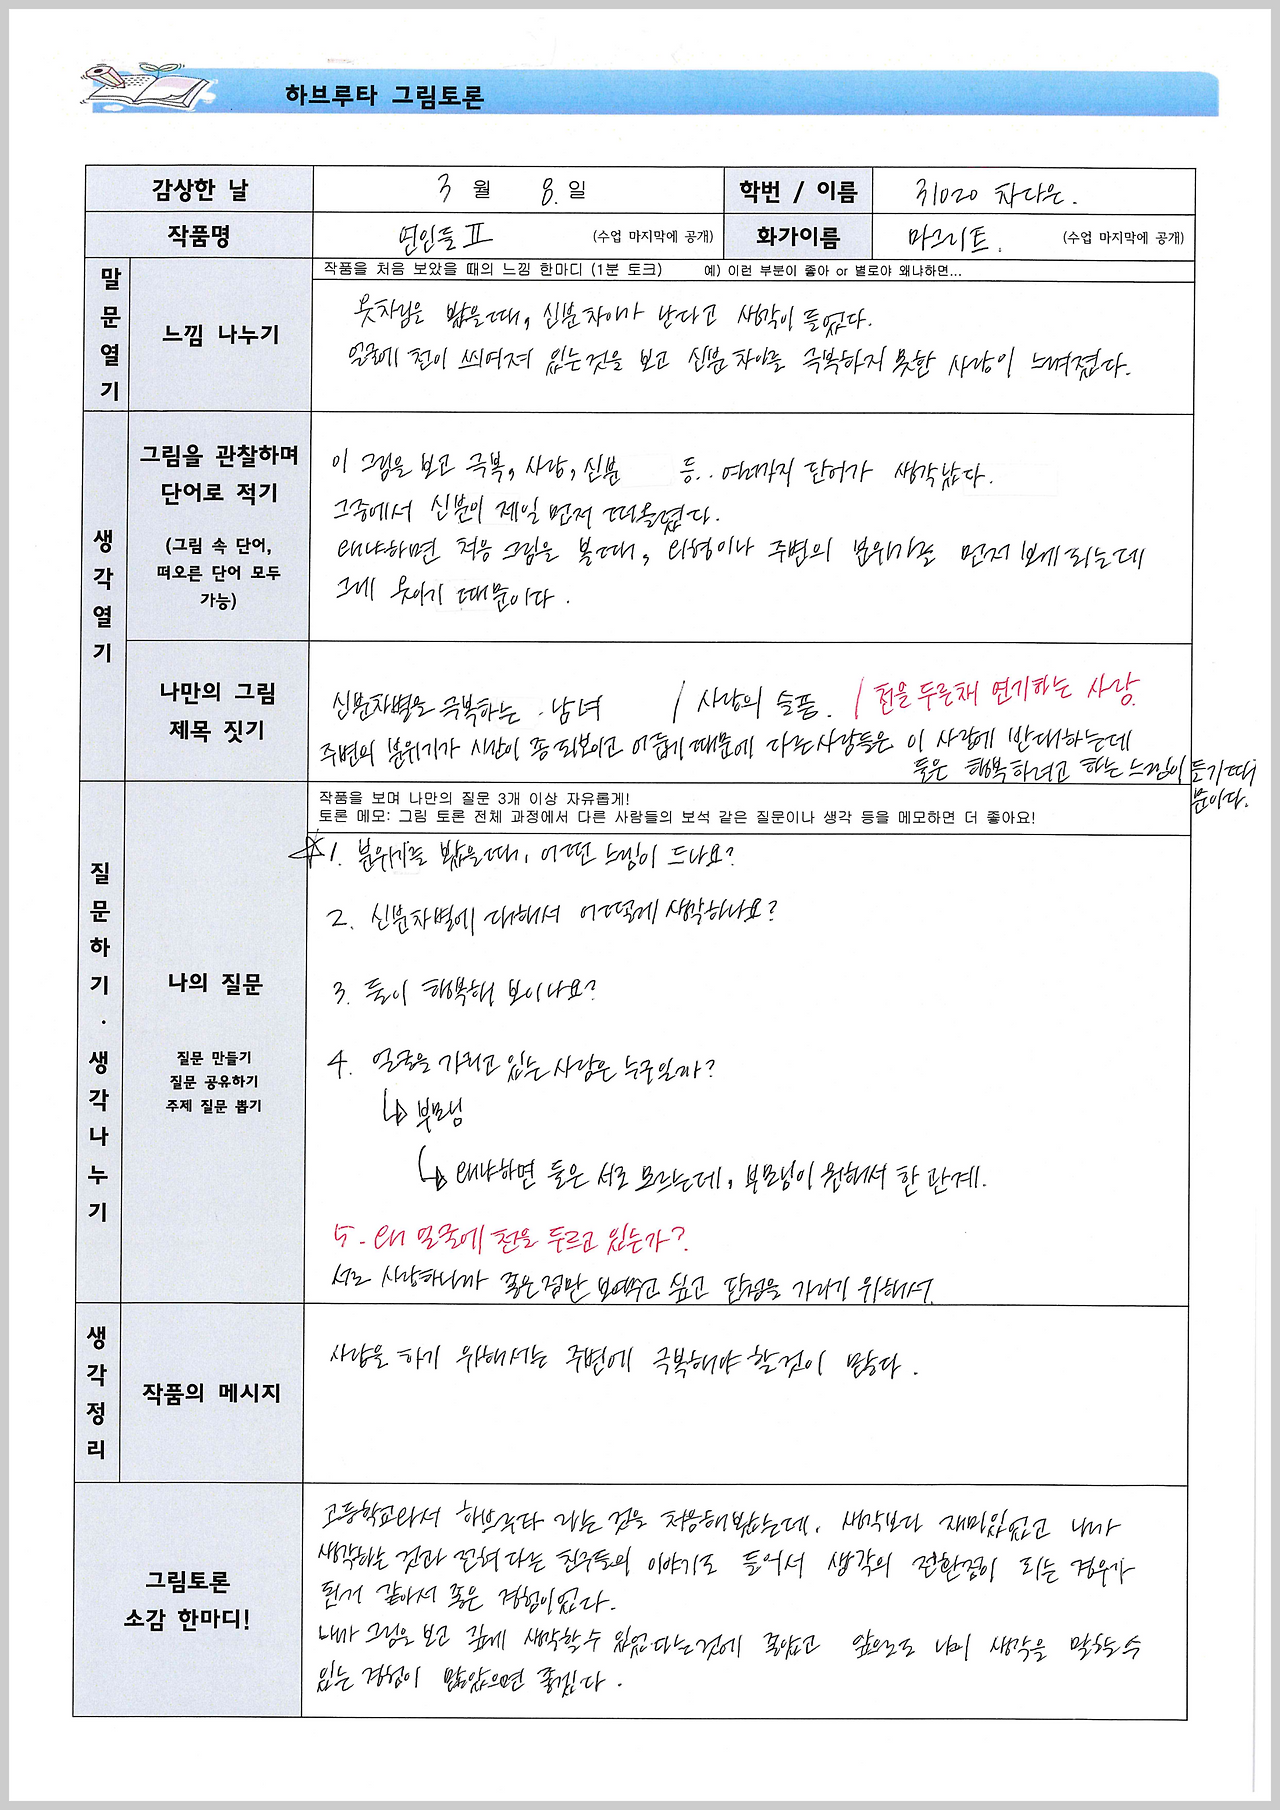 하브루타 그림토론
감상한 날 3월 8.일 학번 / 이름 31020 차다은.
작품명 연인들 II (수업 마지막에 공개) 화가이름 마그리트. (수업 마지막에 공개)
말문열기
느낌 나누기
작품을 처음 보았을 때의 느낌 한마디 (1분 토크) 예) 이런 부분이 좋아 or 별로야 왜냐하면...
옷차림을 봤을때, 신분차이가 난다고 생각이 들었다.
얼굴에 천이 씌여져 있는것을 보고 신분차이를 극복하지 못한 사랑이 느껴졌다.
생각열기
그림을 관찰하며
단어로 적기
(그림 속 단어,
떠오른 단어 모두
가능)
이 그림을 보고 극복, 사랑, 신분 등.. 여러가지 단어가 생각났다.
그중에서 신분이 제일 먼저 떠올렸다.
왜냐하면 처음 그림을 볼때, 외형이나 주변의 분위기를 먼저 보게 되는데
그게 옷이기 때문이다.
나만의 그림
제목 짓기
신분차별을 극복하는 남녀 / 사랑의 슬픔. / 천을 두른채 연기하는 사랑
주변의 분위기가 시간이 좀 되보이고 어둡기 때문에 다른사람들은 이 사랑에 반대하는데
둘은 행복하려고 하는 느낌이 들기 때
문이다.
질문하기·생각나누기
나의 질문
질문 만들기
질문 공유하기
주제 질문 뽑기
작품을 보며 나만의 질문 3개 이상 자유롭게!
토론 메모: 그림 토론 전체 과정에서 다른 사람들의 보석 같은 질문이나 생각 등을 메모하면 더 좋아요!
☆1. 분위기를 봤을때, 어떤 느낌이 드나요?
2. 신분차별에 대해서 어떻게 생각하나요?
3. 둘이 행복해 보이나요?
4. 얼굴을 가리고 있는 사람은 누구일까?
↳ 부모님
↳ 왜냐하면 둘은 서로 모르는데, 부모님이 원해서 한 관계.
5. 왜 얼굴에 천을 두르고 있는가?
서로 사랑하니까 좋은점만 보여주고 싶고 단점을 가리기 위해서.
생각정리
작품의 메시지
사랑을 하기 위해서는 주변에 극복해야 할것이 많다.
그림토론
소감 한마디!
고등학교와서 하브루타 라는 것을 처음해봤는데, 생각보다 재미있었고 내가
생각하는 것과 전혀 다른 친구들의 이야기도 들어서 생각의 전환점이 되는 경우가
된거 같아서 좋은 경험이었다.
내가 그림을 보고 깊게 생각할수 있었다는것에 좋았고 앞으로도 나의 생각을 말하는수
있는 경험이 많았으면 좋겠다.